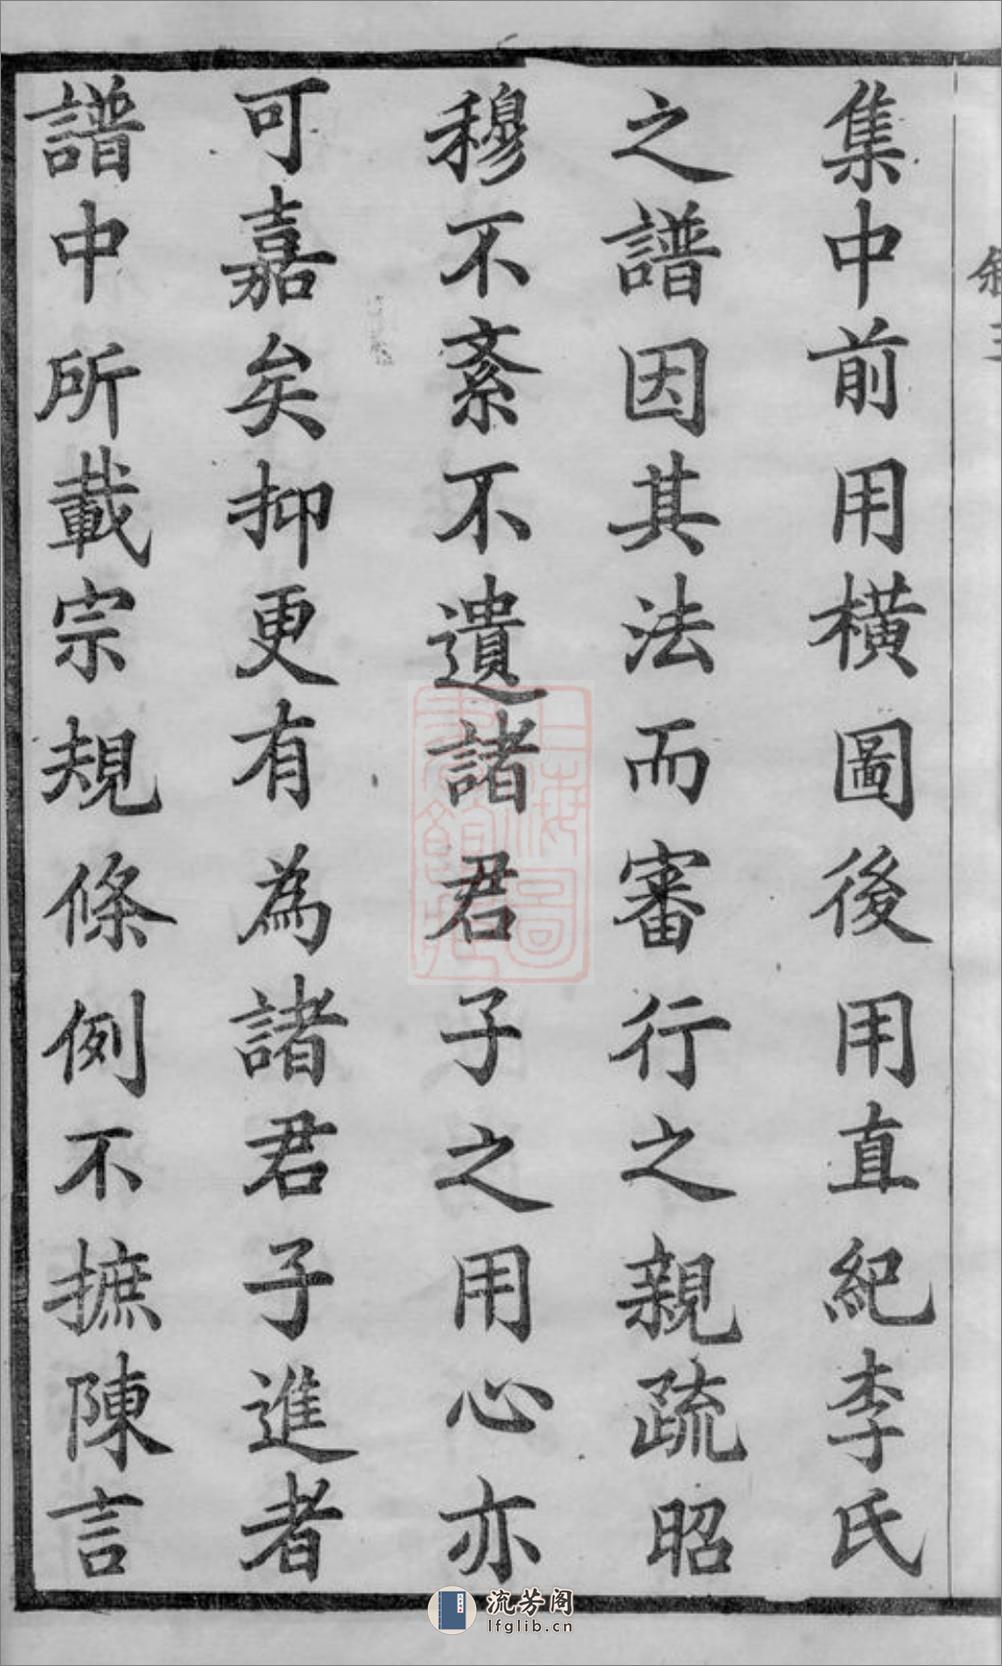 集中前用橫圖後用直紀李氏
之譜因其法而審行之親疏昭
穆不紊不遺諸君子之用心亦
可嘉矣抑更有為諸君子進者
譜中所載宗規條例不摭陳言
上海圖
流芳阁
lfglib.cn